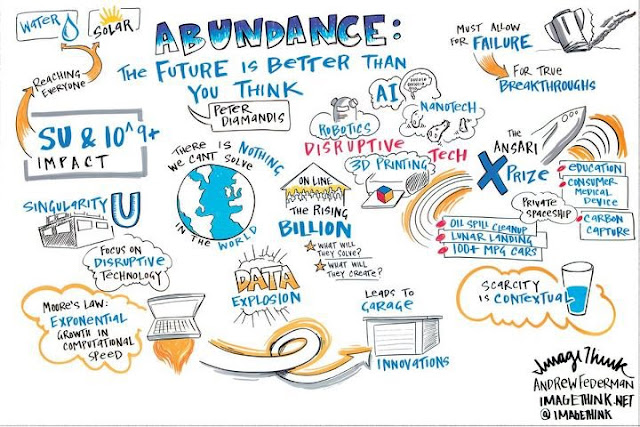 WATER
SOLAR
REACHING
EVERYONE
SU & 10^9+
IMPACT
ABUNDANCE:
THE FUTURE IS BETTER THAN
YOU THINK
PETER
DIAMANDIS
MUST ALLOW
FOR FAILURE
FOR TRUE
BREAKTHROUGHS
AI
NANOTECH
ROBOTICS
DISRUPTIVE
TECH
3D PRINTING
THERE IS NOTHING
WE CAN'T SOLVE
IN THE WORLD
ON LINE
THE RISING
BILLION
WHAT WILL
THEY SOLVE?
WHAT WILL
THEY CREATE?
THE
ANSARI
X PRIZE
PRIVATE
SPACESHIP
EDUCATION
CONSUMER
MEDICAL
DEVICE
CARBON
CAPTURE
OIL SPILL CLEANUP
LUNAR LANDING
100+ MPG CARS
SINGULARITY U
FOCUS ON
DISRUPTIVE
TECHNOLOGY
MOORE'S LAW:
EXPONENTIAL
GROWTH IN
COMPUTATIONAL
SPEED
DATA
EXPLOSION
LEADS TO
GARAGE
INNOVATIONS
SCARCITY
IS CONTEXTUAL
ImageThink
ANDREW FEDERMAN
IMAGETHINK.NET
@IMAGETHINK